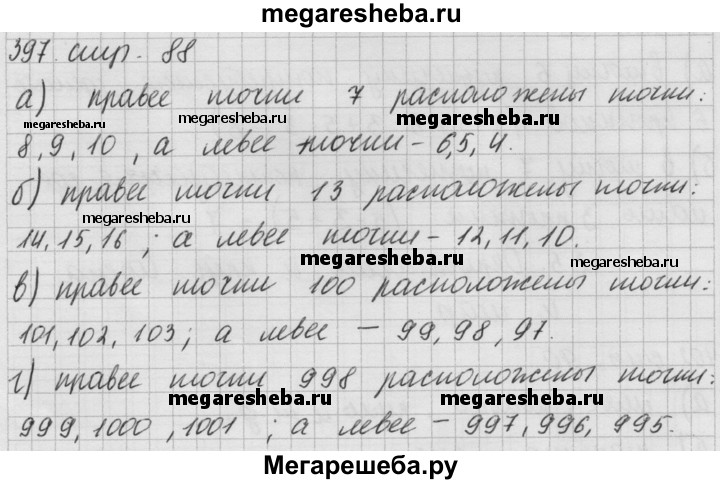 megaresheba.ru
397. стр. 88
а) правее точки 7 расположены точки:
megaresheba.ru megaresheba.ru
8, 9, 10, а левее точки - 6,5, 4.
б) правее точки 13 расположены точки:
megaresheba.ru
14, 15, 16; а левее точки - 12, 11, 10.
megaresheba.ru megaresheba.ru
в) правее точки 100 расположены точки:
101, 102, 103; а левее - 99, 98, 97.
г) правее точки 998 расположены точки:
megaresheba.ru megaresheba.ru
999, 1000, 1001; а левее - 997, 996, 995.
Мегарешеба.ру